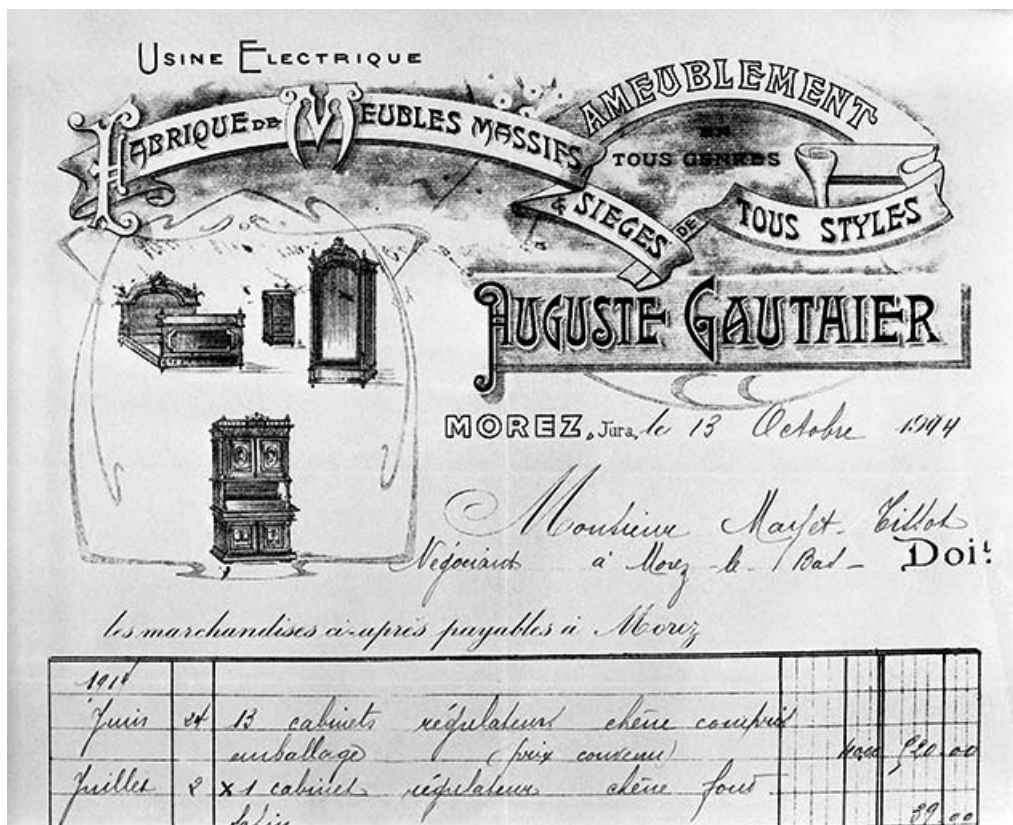 USINE ELECTRIQUE
FABRIQUE DE MEUBLES MASSIFS
AMEUBLEMENT
EN
TOUS GENRES
& SIEGES DE TOUS STYLES
AUGUSTE GAUTHIER
MOREZ, Jura, le 13 Octobre 1914
Monsieur Mayet-Tissot
Négociant à Morez-le-Bas- Doit
les marchandises ci-après payables à Morez
1914
Juin 24 13 cabinets régulateurs chêne compris
emballage (prix convenu) 40.00 520.00
Juillet 2 x 1 cabinet régulateur chêne fond
satin 39.00